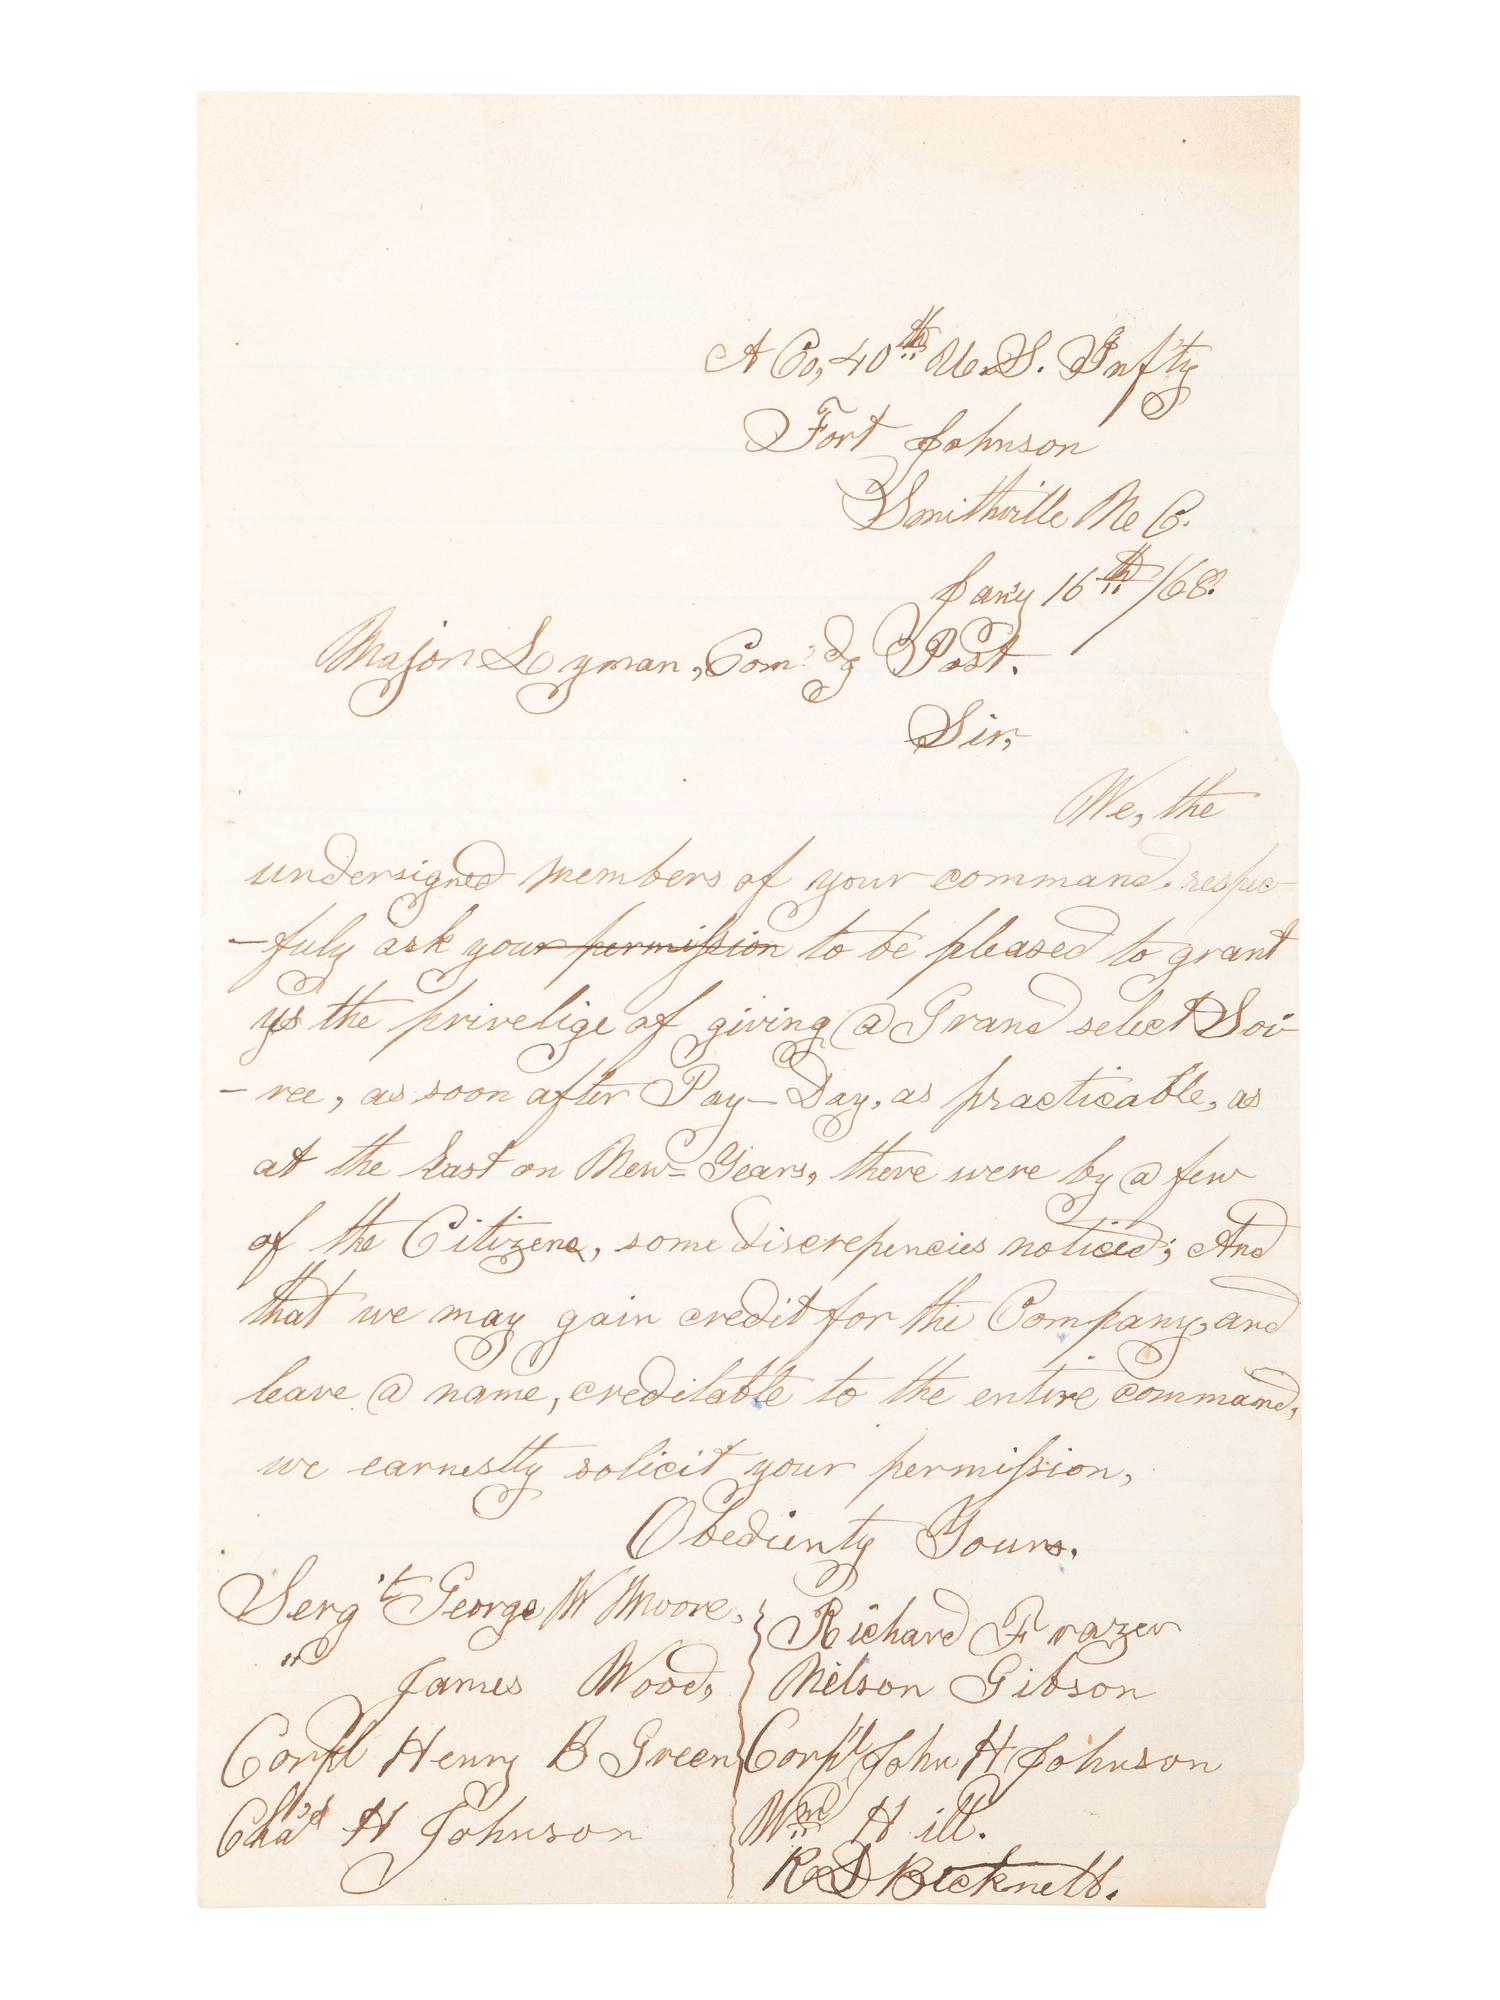 A Co, 40th U.S. Inf'ty
Fort Johnson
Smithville N C.
Jan'y 16th /68.
Major Lyman, Com'dg Post.
Sir,
We, the
undersigned members of your command. respec-
-fuly ask your permission to be pleased to grant
us the privelige of giving a Grand select Soi-
-ree, as soon after Pay-Day, as practicable, as
at the last on New-Years, there were by a few
of the Citizens, some discrepencies noticed; And
that we may gain credit for the Company, and
leave a name, creditable to the entire command,
we earnestly solicit your permission,
Obedienty Yours.
Serg't George W Moore,
" James Wood,
Corpl Henry B Green
Chas H Johnson
Richard Frazer
Nelson Gibson
Corp'l John H Johnson
Wm Hill.
R S Bicknell.